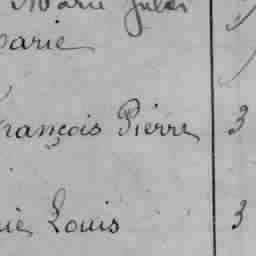 Marie Jules
Marie
François Pierre 3
Louis 3